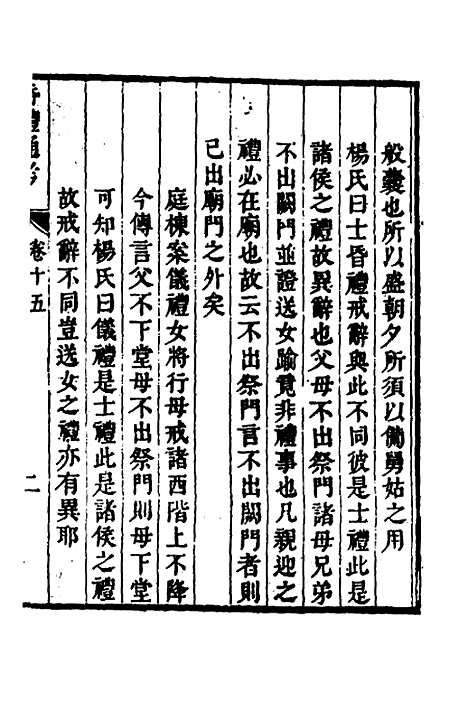 般囊也所以盛朝夕所須以備舅姑之用
楊氏曰士昏禮戒辭與此不同彼是士禮此是
諸侯之禮故異辭也父母不出祭門諸母兄弟
不出闕門並證送女踰竟非禮事也凡親迎之
禮必在廟也故云不出祭門言不出闕門者則
已出廟門之外矣
庭棟案儀禮女將行母戒諸西階上不降
今傳言父不下堂母不出祭門則母下堂
可知楊氏曰儀禮是士禮此是諸侯之禮
故戒辭不同豈送女之禮亦有異耶
禮通考
卷十五
二